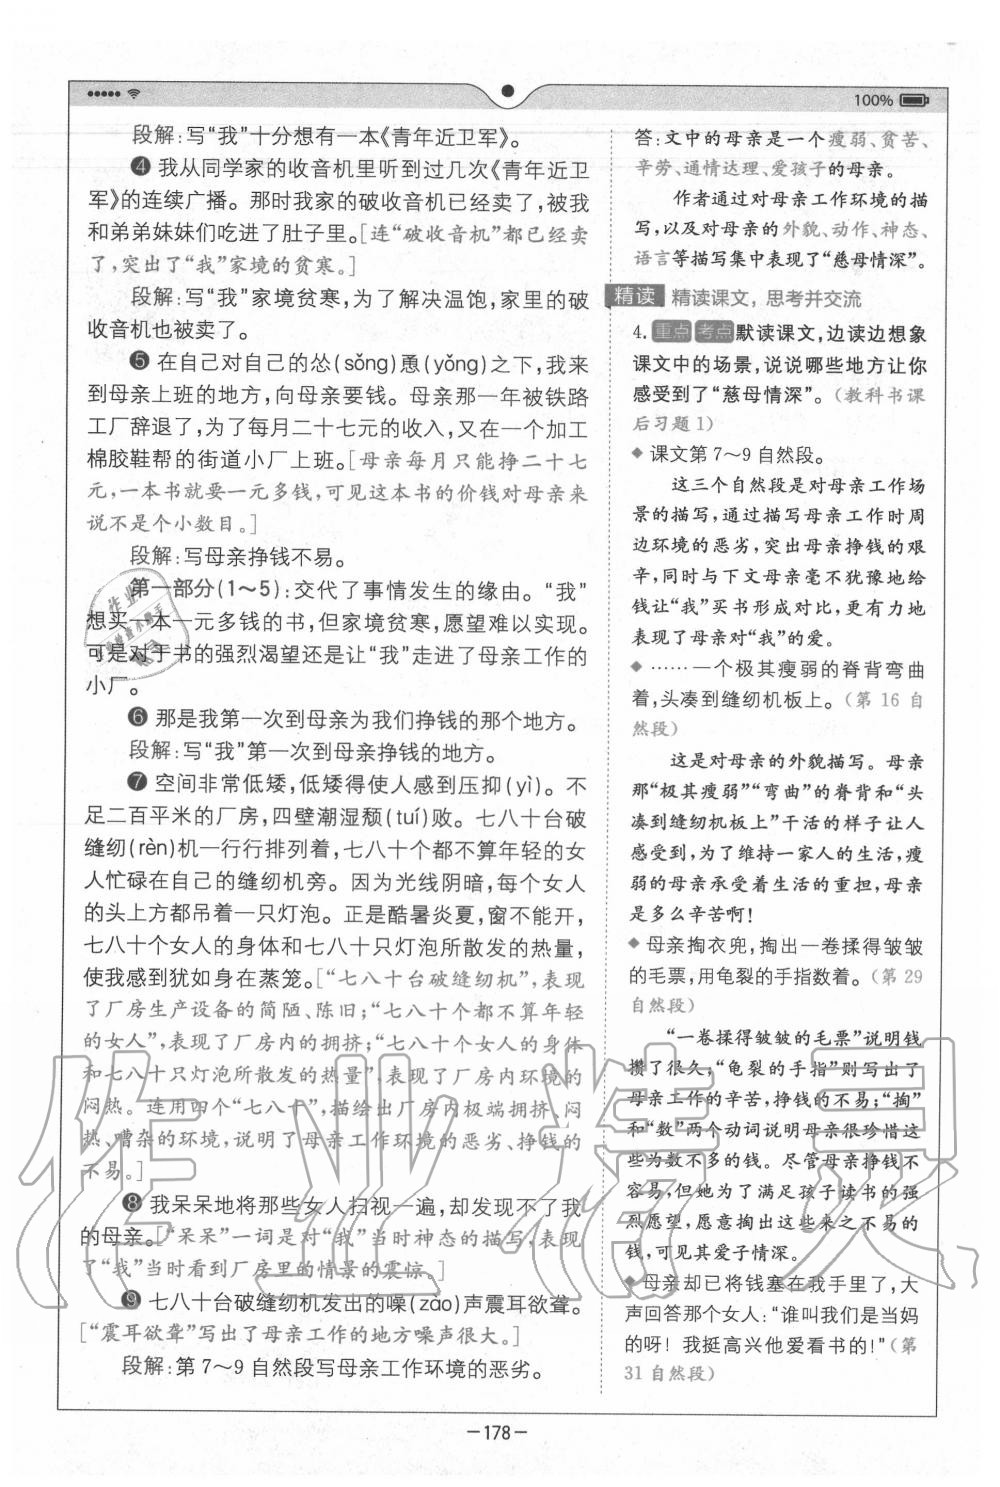 100%
段解:写“我”十分想有一本《青年近卫军》。
❹ 我从同学家的收音机里听到过几次《青年近卫
军》的连续广播。那时我家的破收音机已经卖了,被我
和弟弟妹妹们吃进了肚子里。[连“破收音机”都已经卖
了,突出了“我”家境的贫寒。]
段解:写“我”家境贫寒,为了解决温饱,家里的破
收音机也被卖了。
❺ 在自己对自己的怂(sǒng)恿(yǒng)之下,我来
到母亲上班的地方,向母亲要钱。母亲那一年被铁路
工厂辞退了,为了每月二十七元的收入,又在一个加工
棉胶鞋帮的街道小厂上班。[母亲每月只能挣二十七
元,一本书就要一元多钱,可见这本书的价钱对母亲来
说不是个小数目。]
段解:写母亲挣钱不易。
第一部分(1～5):交代了事情发生的缘由。“我”
想买一本一元多钱的书,但家境贫寒,愿望难以实现。
可是对于书的强烈渴望还是让“我”走进了母亲工作的
小厂。
❻ 那是我第一次到母亲为我们挣钱的那个地方。
段解:写“我”第一次到母亲挣钱的地方。
❼ 空间非常低矮,低矮得使人感到压抑(yì)。不
足二百平米的厂房,四壁潮湿颓(tuí)败。七八十台破
缝纫(rèn)机一行行排列着,七八十个都不算年轻的女
人忙碌在自己的缝纫机旁。因为光线阴暗,每个女人
的头上方都吊着一只灯泡。正是酷暑炎夏,窗不能开,
七八十个女人的身体和七八十只灯泡所散发的热量,
使我感到犹如身在蒸笼。[“七八十台破缝纫机”,表现
了厂房生产设备的简陋、陈旧;“七八十个都不算年轻
的女人”,表现了厂房内的拥挤;“七八十个女人的身体
和七八十只灯泡所散发的热量”,表现了厂房内环境的
闷热。连用四个“七八十”,描绘出厂房内极端拥挤、闷
热、嘈杂的环境,说明了母亲工作环境的恶劣、挣钱的
不易。]
❽ 我呆呆地将那些女人扫视一遍,却发现不了我
的母亲。[“呆呆”一词是对“我”当时神态的描写,表现
了“我”当时看到厂房里的情景的震惊。]
❾ 七八十台破缝纫机发出的噪(zào)声震耳欲聋。
[“震耳欲聋”写出了母亲工作的地方噪声很大。]
段解:第7～9自然段写母亲工作环境的恶劣。
答:文中的母亲是一个瘦弱、贫苦、
辛劳、通情达理、爱孩子的母亲。
作者通过对母亲工作环境的描
写,以及对母亲的外貌、动作、神态、
语言等描写集中表现了“慈母情深”。
精读 精读课文，思考并交流
4. 重点 考点 默读课文,边读边想象
课文中的场景,说说哪些地方让你
感受到了“慈母情深”。(教科书课
后习题1)
◆ 课文第7～9自然段。
这三个自然段是对母亲工作场
景的描写,通过描写母亲工作时周
边环境的恶劣,突出母亲挣钱的艰
辛,同时与下文母亲毫不犹豫地给
钱让“我”买书形成对比,更有力地
表现了母亲对“我”的爱。
◆ ……一个极其瘦弱的脊背弯曲
着,头凑到缝纫机板上。(第16自
然段)
这是对母亲的外貌描写。母亲
那“极其瘦弱”“弯曲”的脊背和“头
凑到缝纫机板上”干活的样子让人
感受到,为了维持一家人的生活,瘦
弱的母亲承受着生活的重担,母亲
是多么辛苦啊!
◆ 母亲掏衣兜,掏出一卷揉得皱皱
的毛票,用龟裂的手指数着。(第29
自然段)
“一卷揉得皱皱的毛票”说明钱
攒了很久;“龟裂的手指”则写出了
母亲工作的辛苦,挣钱的不易;“掏”
和“数”两个动词说明母亲很珍惜这
些为数不多的钱。尽管母亲挣钱不
容易,但她为了满足孩子读书的强
烈愿望,愿意掏出这些来之不易的
钱,可见其爱子情深。
◆ 母亲却已将钱塞在我手里了,大
声回答那个女人:“谁叫我们是当妈
的呀!我挺高兴他爱看书的!”(第
31自然段)
作业精灵
—178—